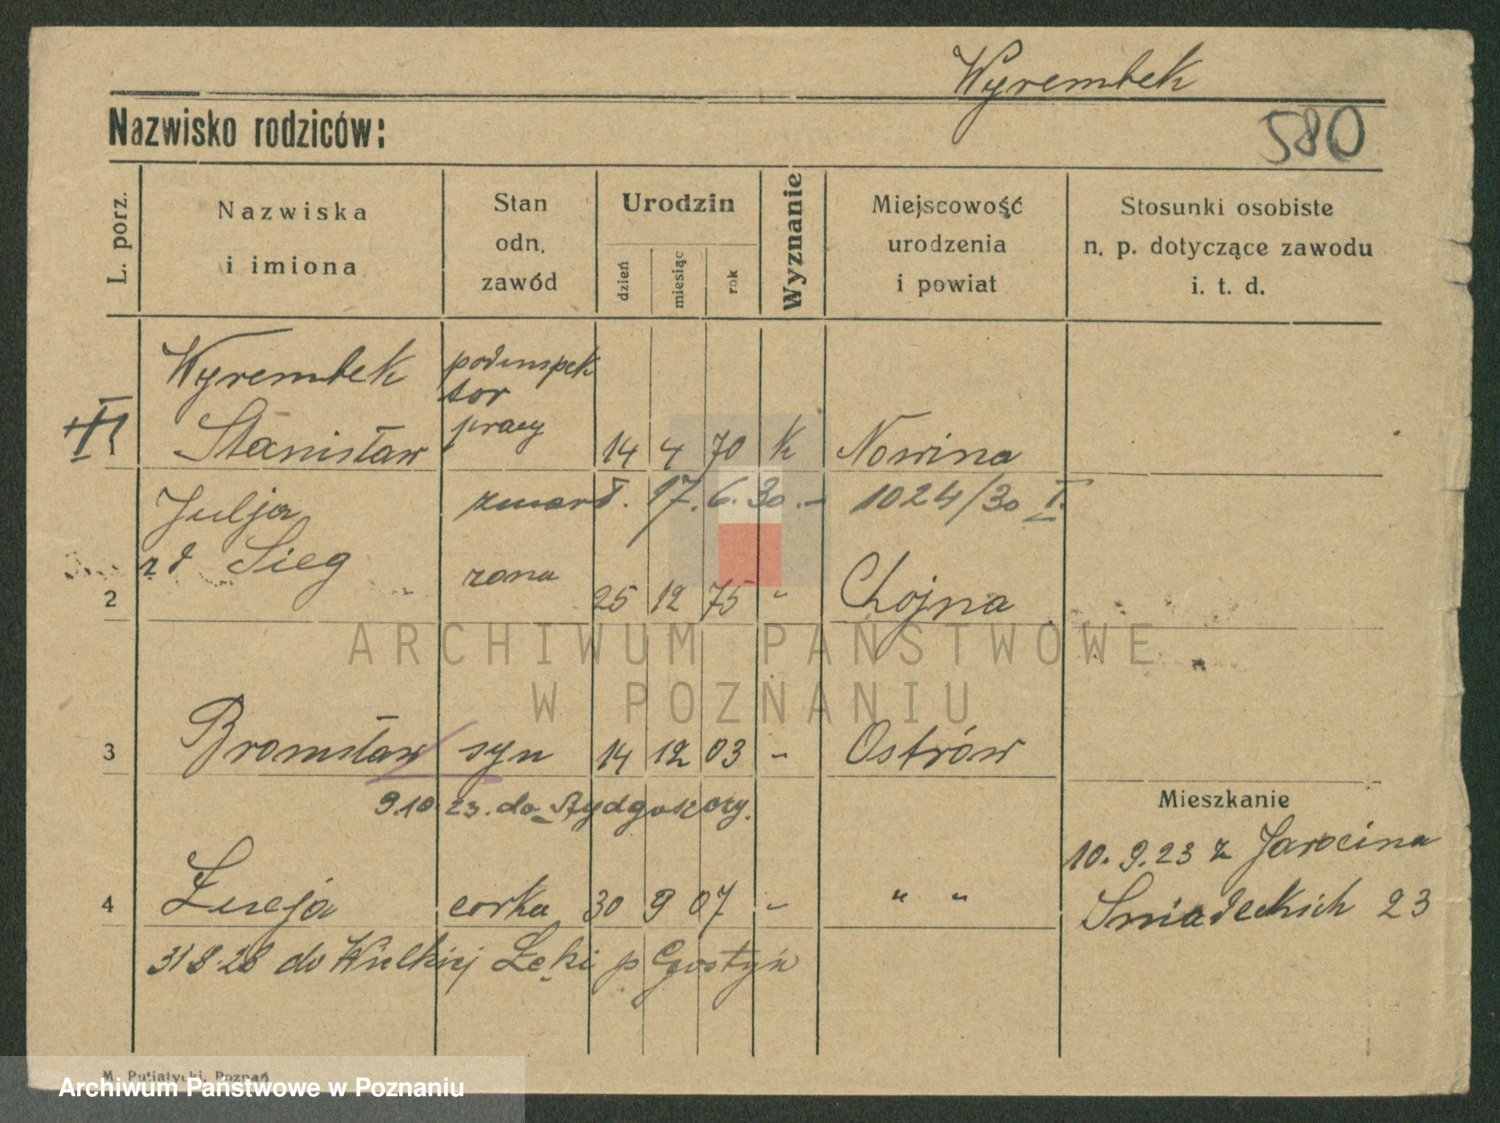 Wyrembek
Nazwisko rodziców:
580
L. porz.
Nazwiska
i imiona
Stan
odn.
zawód
Urodzin
dzień
miesiąc
rok
Wyznanie
Miejscowość
urodzenia
i powiat
Stosunki osobiste
n. p. dotyczące zawodu
i. t. d.
Wyrembek
podinspek
tor
Stanisław pracy 14 4 70 k Nowina
Julja zmarł. 17. 6. 30. – 1024/30 I.
zd Sieg
2 żona 25 12 75 - Chojna
ARCHIWUM PAŃSTWOWE
W POZNANIU
3 Bronisław syn 14 12 03 - Ostrów
9.10.23. do Bydgoszczy.
Mieszkanie
10. 9. 23 z Jarocina
4 Łucja córka 30 9 07 - " " Śniadeckich 23
31 8. 28 do Wielkiej Łęki p Gostyń
M. Putiatycki, Poznań
Archiwum Państwowe w Poznaniu